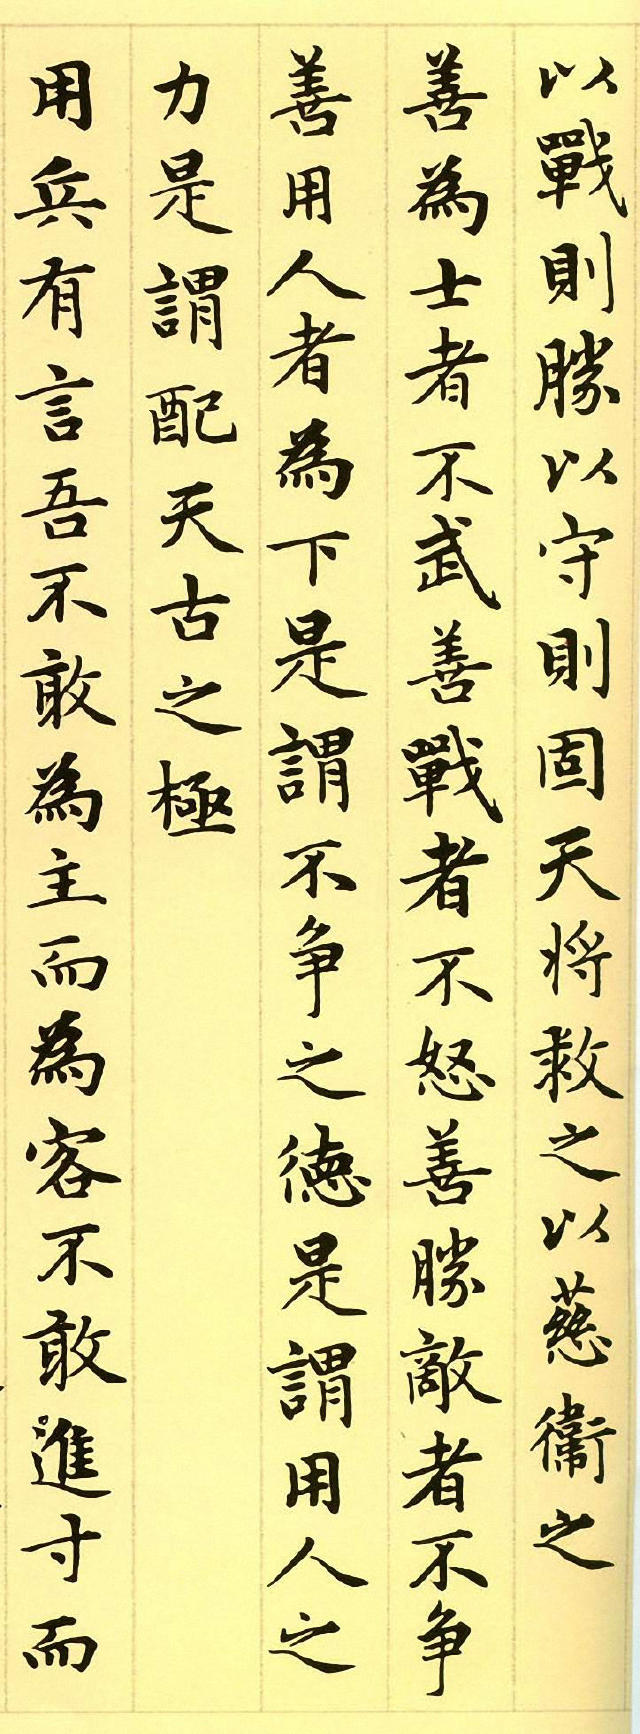 以戰則勝以守則固天將救之以慈衞之
善為士者不武善戰者不怒善勝敵者不争
善用人者為下是謂不争之德是謂用人之
力是謂配天古之極
用兵有言吾不敢為主而為客不敢進寸而